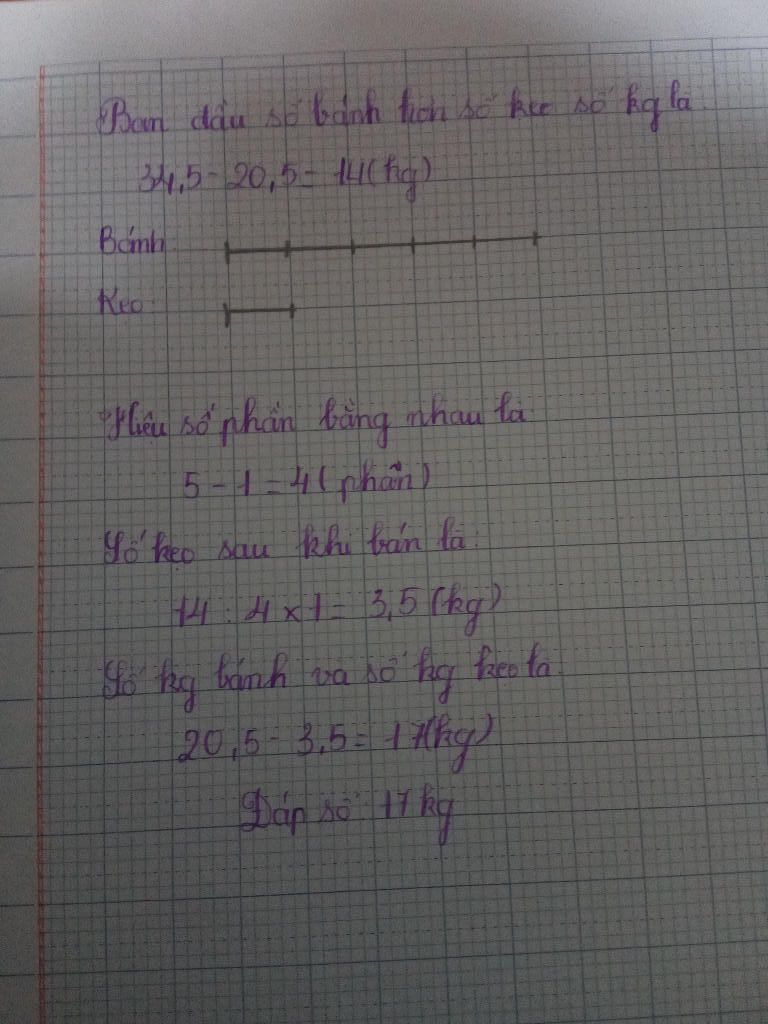 Ban đầu số bánh hơn số kẹo số kg là:
34,5 - 20,5 = 14 (kg)
Bánh
Kẹo
Hiệu số phần bằng nhau là
5 - 1 = 4 (phần)
Số kẹo sau khi bán là:
14 : 4 x 1 = 3,5 (kg)
Số kg bánh và số kg kẹo là
20,5 - 3,5 = 17 (kg)
Đáp số 17 kg